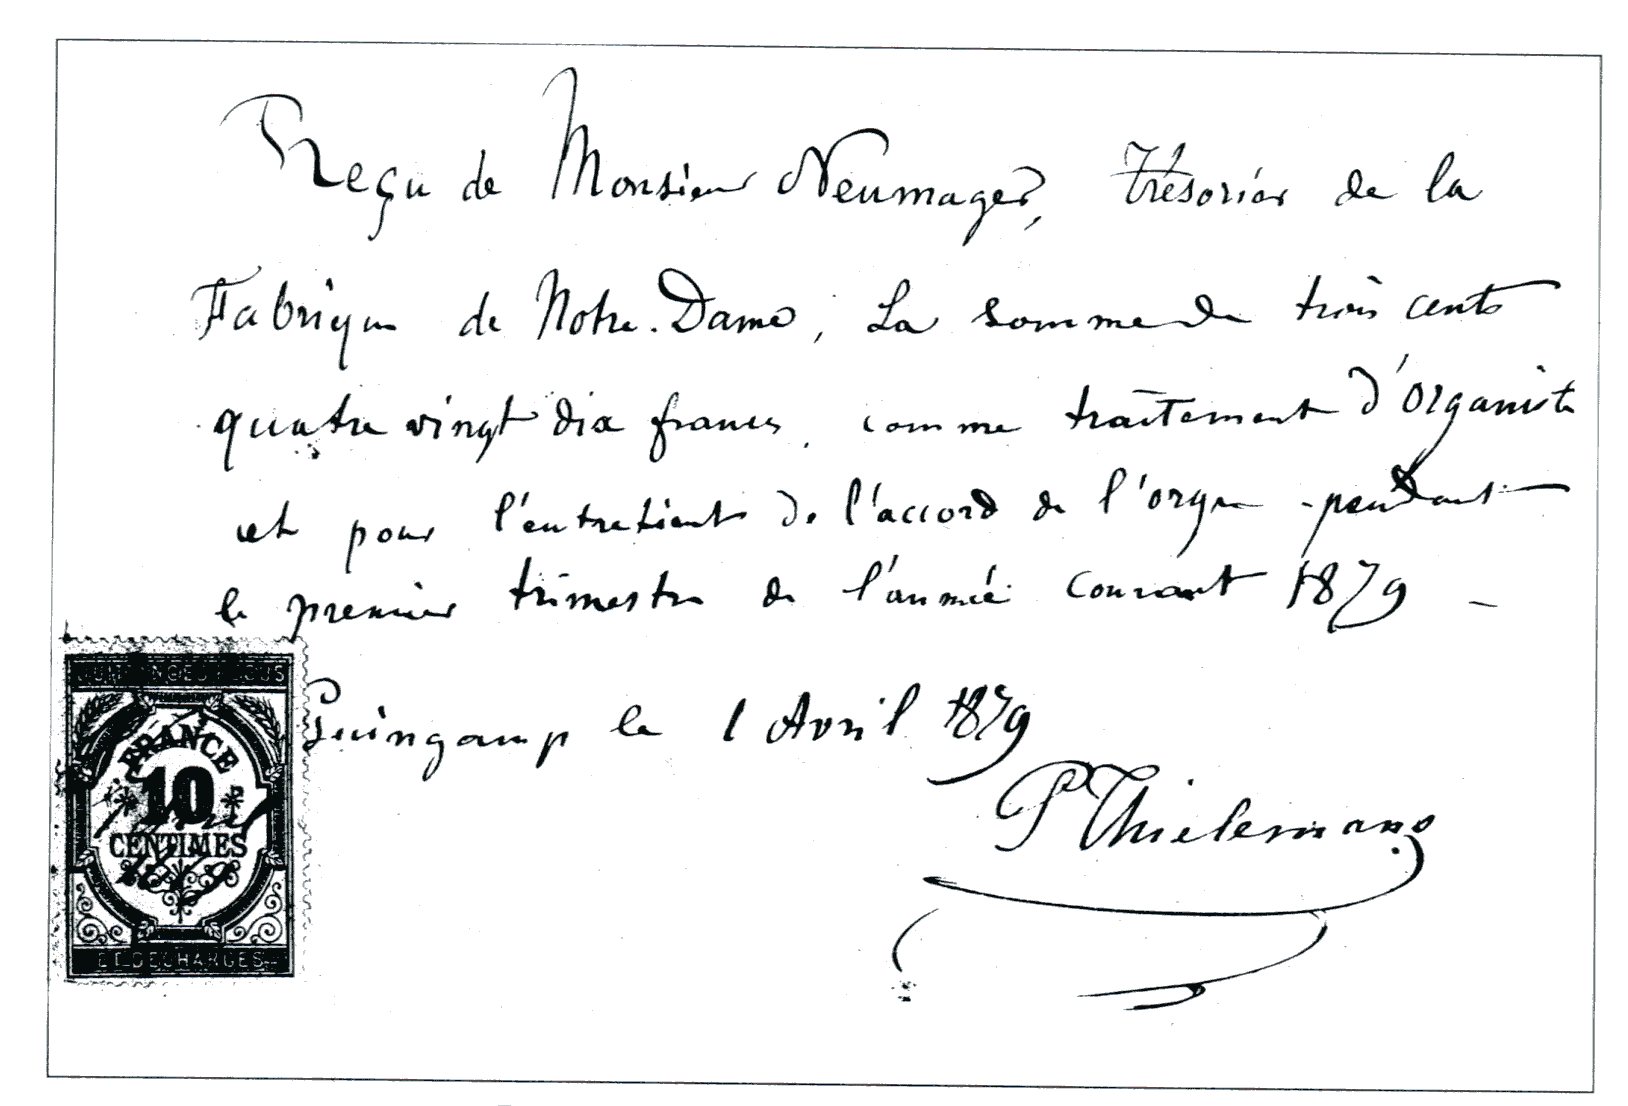 Reçu de Monsieur Neumager, trésorier de la
Fabrique de Notre-Dame, La somme de trois cents
quatre vingt dix francs, comme traitement d'organiste
et pour l'entretient de l'accord de l'orgue pendant
le premier trimestre de l'année courant 1879 -
Guingamp le 1 Avril 1879
P Thielemans
QUITTANCES REÇUS
FRANCE
10
CENTIMES
ET DECHARGES